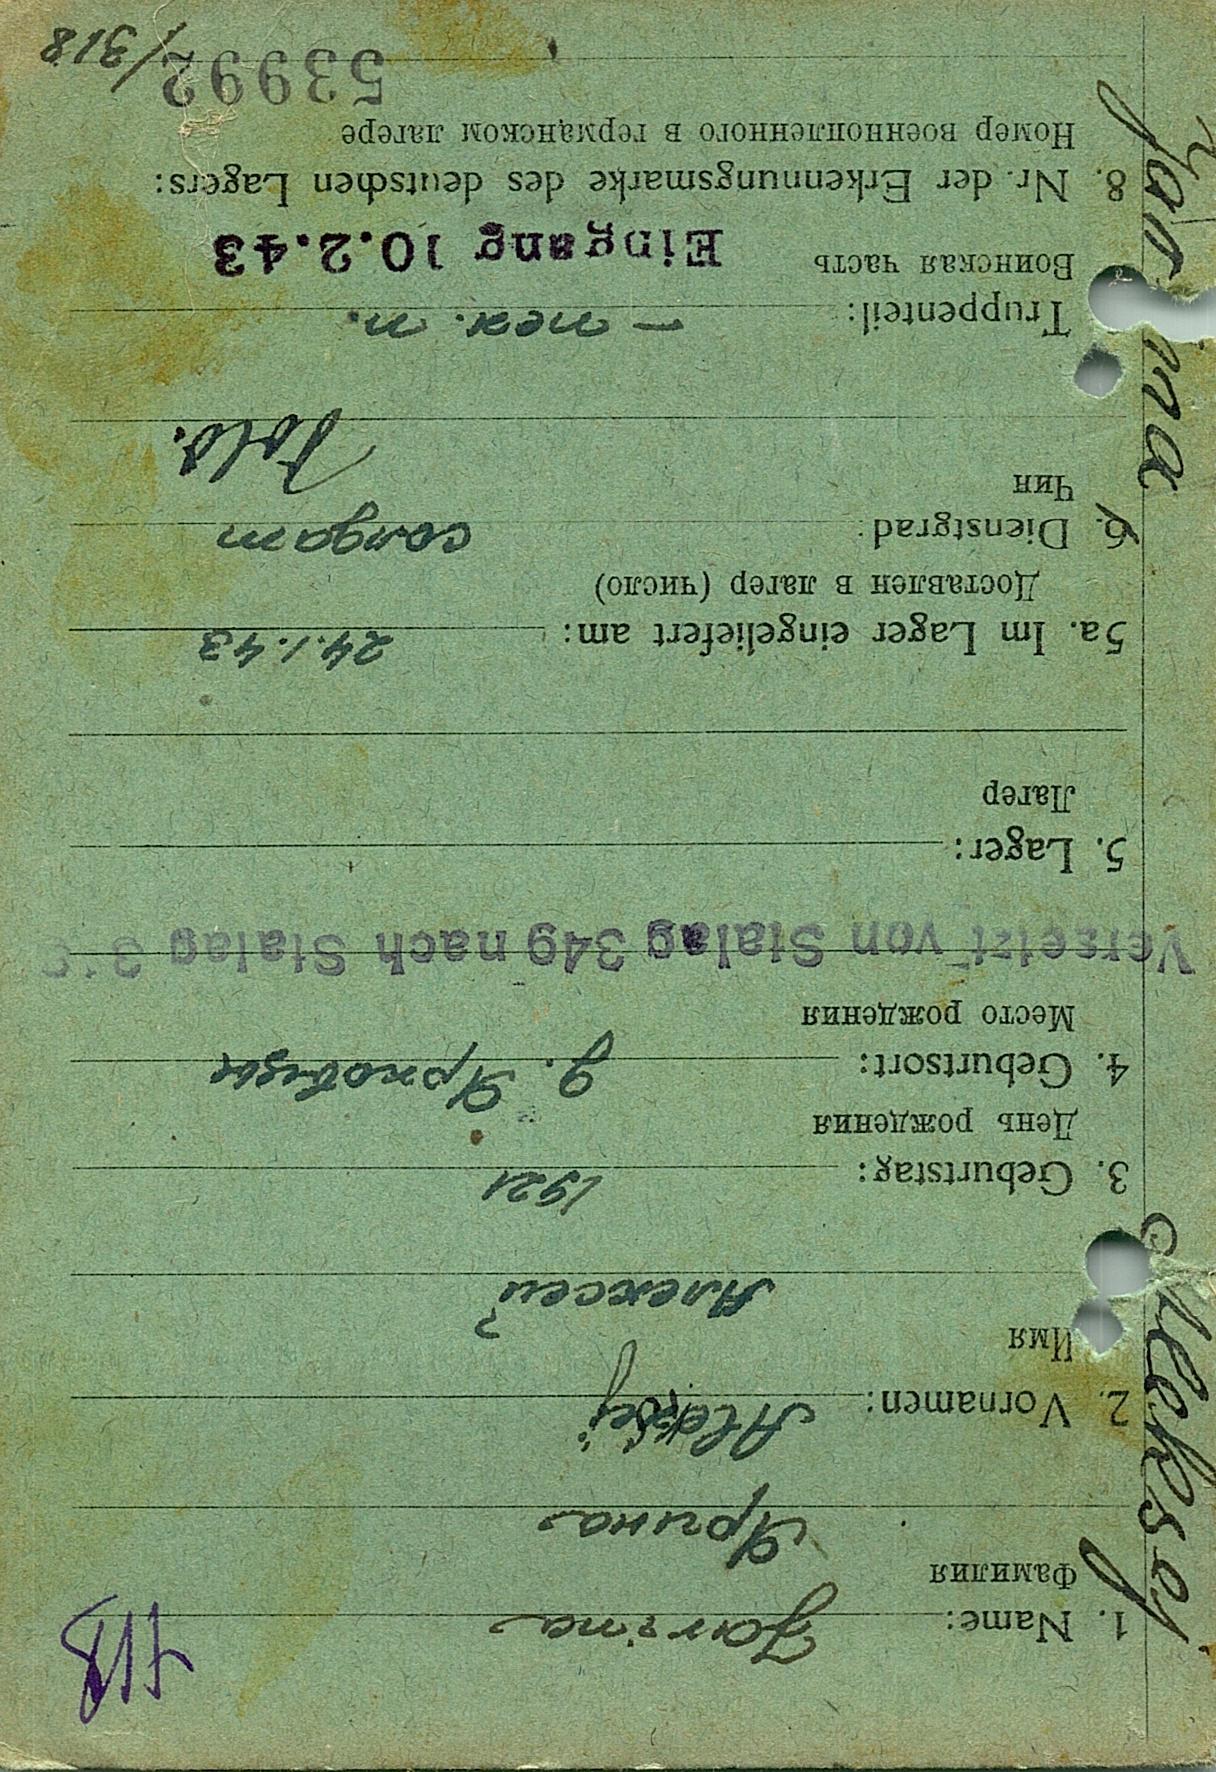 1. Name: Jarina
Фамилия
Ярина
2. Vornamen: Aleksej
Имя
Алексей
3. Geburtstag: 1921
День рождения
4. Geburtsort: д.
Место рождения
Versetzt von Stalag 349 nach Stalag
5. Lager:
Лагер
5a. Im Lager eingeliefert am: 24.1.43
Доставлен в лагер (число)
6. Dienstgrad: солдат
Чин
Sold.
Truppenteil: – пех. п.
Воинская часть
Eingang 10.2.43
8. Nr. der Erkennungsmarke des deutschen Lagers:
Номер военнопленного в германском лагере
53992 /318
Aleksej Jarina